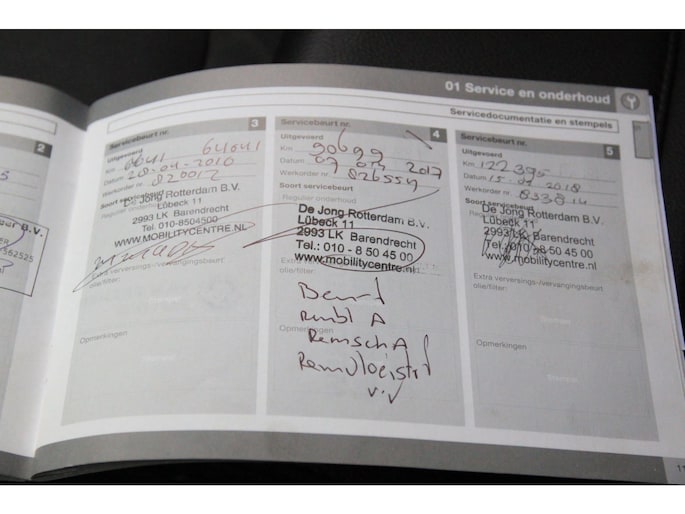 01 Service en onderhoud
Servicedocumentatie en stempels
2
Servicebeurt nr. 3
Uitgevoerd
Km 64641
Datum 28-04-2010
Werkorder nr. 820012
Soort servicebeurt
De Jong Rotterdam B.V.
Lübeck 11
2993 LK Barendrecht
Tel. 010-8504500
WWW.MOBILITYCENTRE.NL
Extra verversings-/vervangingsbeurt
olie/filter:
Opmerkingen
Servicebeurt nr. 4
Uitgevoerd
Km 90699
Datum 2017
Werkorder nr. 826554
Soort servicebeurt
Regulier onderhoud
De Jong Rotterdam B.V.
Lübeck 11
2993 LK Barendrecht
Tel.: 010 - 8 50 45 00
www.mobilitycentre.nl
Extra verversings-/vervangingsbeurt
olie/filter:
Beurt
Rembl A
Remsch A
Remvloeistof
v.v
Opmerkingen
Servicebeurt nr. 5
Uitgevoerd
Km 122395
Datum 2018
Werkorder nr. 833814
Soort servicebeurt
De Jong Rotterdam B.V.
Lübeck 11
2993 LK Barendrecht
Tel.: 010 - 8 50 45 00
www.mobilitycentre.nl
Extra verversings-/vervangingsbeurt
olie/filter:
Opmerkingen
11